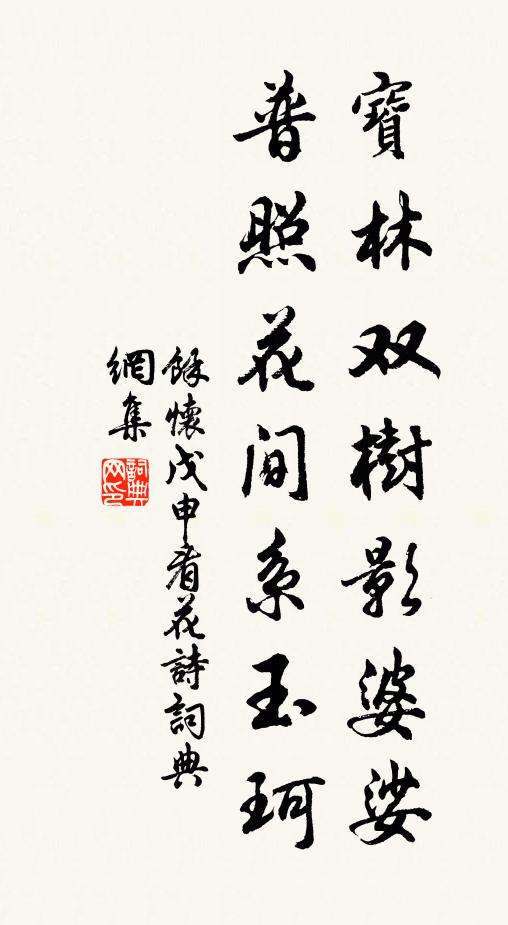 寶林双樹影婆娑
普照花間系玉珂
餘懷戊申看花詩詞典
網集
詞典網印